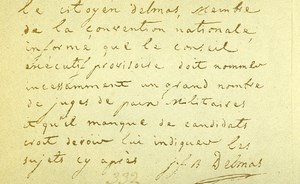 le citoyen Delmas, Membre
de la convention nationale
informe que le Conseil
exécutif provisoire doit nommer
incessamment un grand nombre
de juges de paix Militaires
et qu'il manque de candidats
croit devoir lui indiquer les
sujets cy après
Delmas